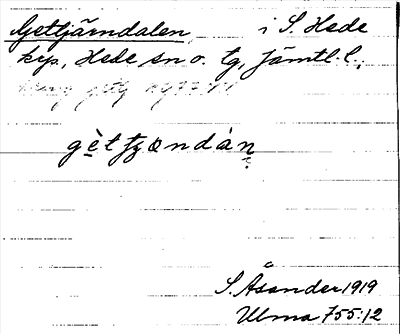 Gettjärndalen, i S. Hede
krp., Hede sn o. tg, Jämtl. l.;
gètʃæɳdàn̥
S. Åsander 1919
Ulma 755:12